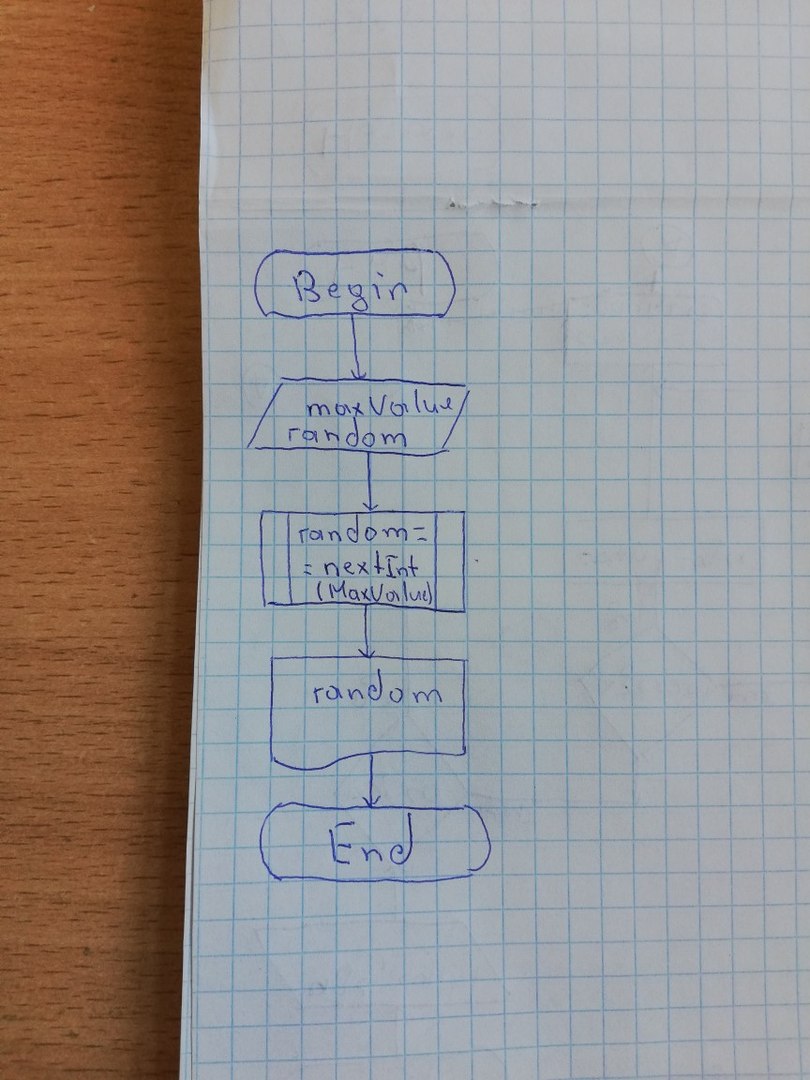 Begin
maxValue
random
random=
=nextInt
(MaxValue)
random
End